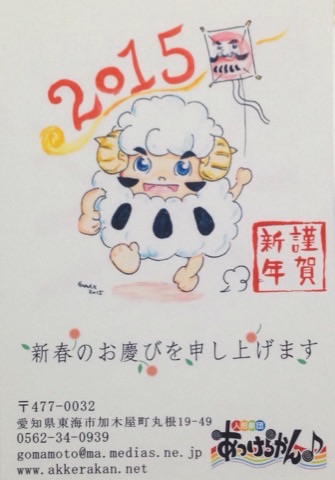 2015
謹賀
新年
新春のお慶びを申し上げます
〒477-0032
愛知県東海市加木屋町丸根19-49
0562-34-0939
gomamoto@ma.medias.ne.jp
www.akkerakan.net
人形劇団
あっけらかん♪